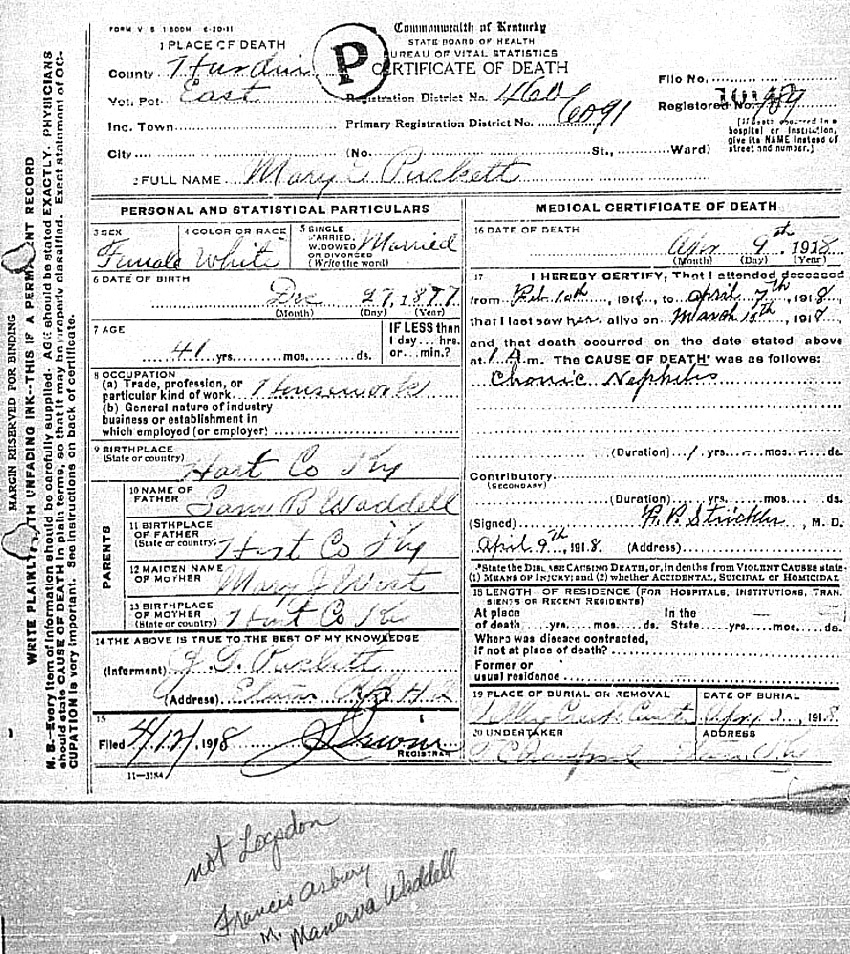 FORM V. S. 1 500M 6-20-11
Commonwealth of Kentucky
STATE BOARD OF HEALTH
BUREAU OF VITAL STATISTICS
CERTIFICATE OF DEATH
P
1 PLACE OF DEATH
County Hardin
Vot. Pct. East
Inc. Town
City (No. St., Ward)
Registration District No. 460
Primary Registration District No. 6091
File No.
Registered No.
(If death occurred in a hospital or institution, give its NAME instead of street and number.)
2 FULL NAME Mary E Puckett
PERSONAL AND STATISTICAL PARTICULARS
3 SEX Female
4 COLOR OR RACE White
5 SINGLE MARRIED, WIDOWED OR DIVORCED (Write the word) Married
6 DATE OF BIRTH
Dec 27, 1877
(Month) (Day) (Year)
7 AGE
41 yrs. mos. ds.
IF LESS than 1 day... hrs. or... min.?
8 OCCUPATION
(a) Trade, profession, or particular kind of work Housework
(b) General nature of industry business or establishment in which employed (or employer)
9 BIRTHPLACE
(State or country) Hart Co Ky
PARENTS
10 NAME OF FATHER B Waddell
11 BIRTHPLACE OF FATHER (State or country) Hart Co Ky
12 MAIDEN NAME OF MOTHER Mary J
13 BIRTHPLACE OF MOTHER (State or country) Hart Co Ky
14 THE ABOVE IS TRUE TO THE BEST OF MY KNOWLEDGE
(Informant) Puckett
(Address)
15
Filed 4/12/, 1918
REGISTRAR
11—3184
MEDICAL CERTIFICATE OF DEATH
16 DATE OF DEATH
Apr 9th, 1918
(Month) (Day) (Year)
17 I HEREBY CERTIFY, That I attended deceased
from Feb 10th, 1918, to April 7th, 1918,
that I last saw her alive on March, 191
and that death occurred on the date stated above
at 1 A. m. The CAUSE OF DEATH* was as follows:
Chonic Nephitis
(Duration) 1 yrs. mos. ds.
Contributory
(SECONDARY)
(Duration) yrs. mos. ds.
(Signed), M. D.
April 9th, 1918. (Address)
*State the DISEASE CAUSING DEATH, or, in deaths from VIOLENT CAUSES state (1) MEANS OF INJURY; and (2) whether ACCIDENTAL, SUICIDAL or HOMICIDAL
18 LENGTH OF RESIDENCE (FOR HOSPITALS, INSTITUTIONS, TRANSIENTS OR RECENT RESIDENTS)
At place of death yrs. mos. ds. In the State yrs. mos. ds.
Where was disease contracted, if not at place of death?
Former or usual residence
19 PLACE OF BURIAL OR REMOVAL
DATE OF BURIAL
Apr, 1918.
20 UNDERTAKER
ADDRESS
MARGIN RESERVED FOR BINDING
WRITE PLAINLY, WITH UNFADING INK—THIS IF A PERMANENT RECORD
N. B.—Every item of information should be carefully supplied. AGE should be stated EXACTLY. PHYSICIANS
should state CAUSE OF DEATH in plain terms, so that it may be properly classified. Exact statement of OC-
CUPATION is very important. See instructions on back of certificate.
not Logsdon
Francis Asbury
m. Manerva Waddell